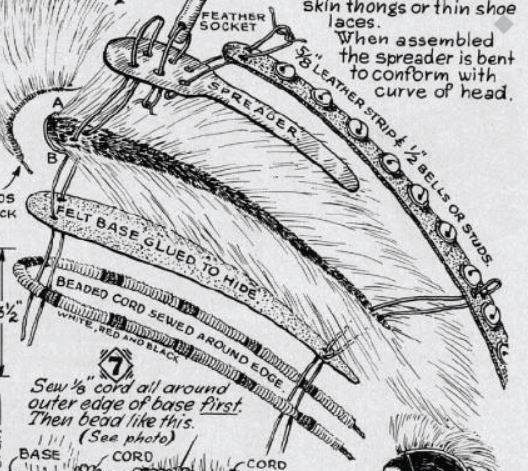 FEATHER
SOCKET
skin thongs or thin shoe
laces.
When assembled
the spreader is bent
to conform with
curve of head.
5/8" LEATHER STRIP & 1/2" BELLS OR STUDS.
SPREADER
A
B
FELT BASE GLUED TO HIDE
BEADED CORD SEWED AROUND EDGE.
WHITE, RED AND BLACK
7
Sew 1/8" cord all around
outer edge of base first.
Then bead like this.
(See photo)
BASE
CORD
CORD